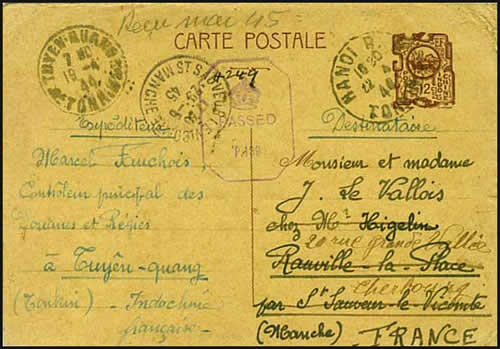 Reçu mai 45 =
CARTE POSTALE
TUYEN-QUANG
7 NO
19 - 4
44
TONKIN
ST SAUVEUR LE VICOMTE
MANCHE
45
4249
PASSED
HANOI R.P.
18 30
22 4
44
TONKIN
Expéditeur
Marcel Fauchois,
Contrôleur principal des
Douanes et Régies
à Tuyên-quang
(Tonkin) - Indochine
française -
Destinataire
Monsieur et madame
J. Le Vallois
chez Mr Higelin
20 rue grande Vallée
Rauville-la-Place
Cherbourg
par St Sauveur le Vicomte
(Manche) - FRANCE